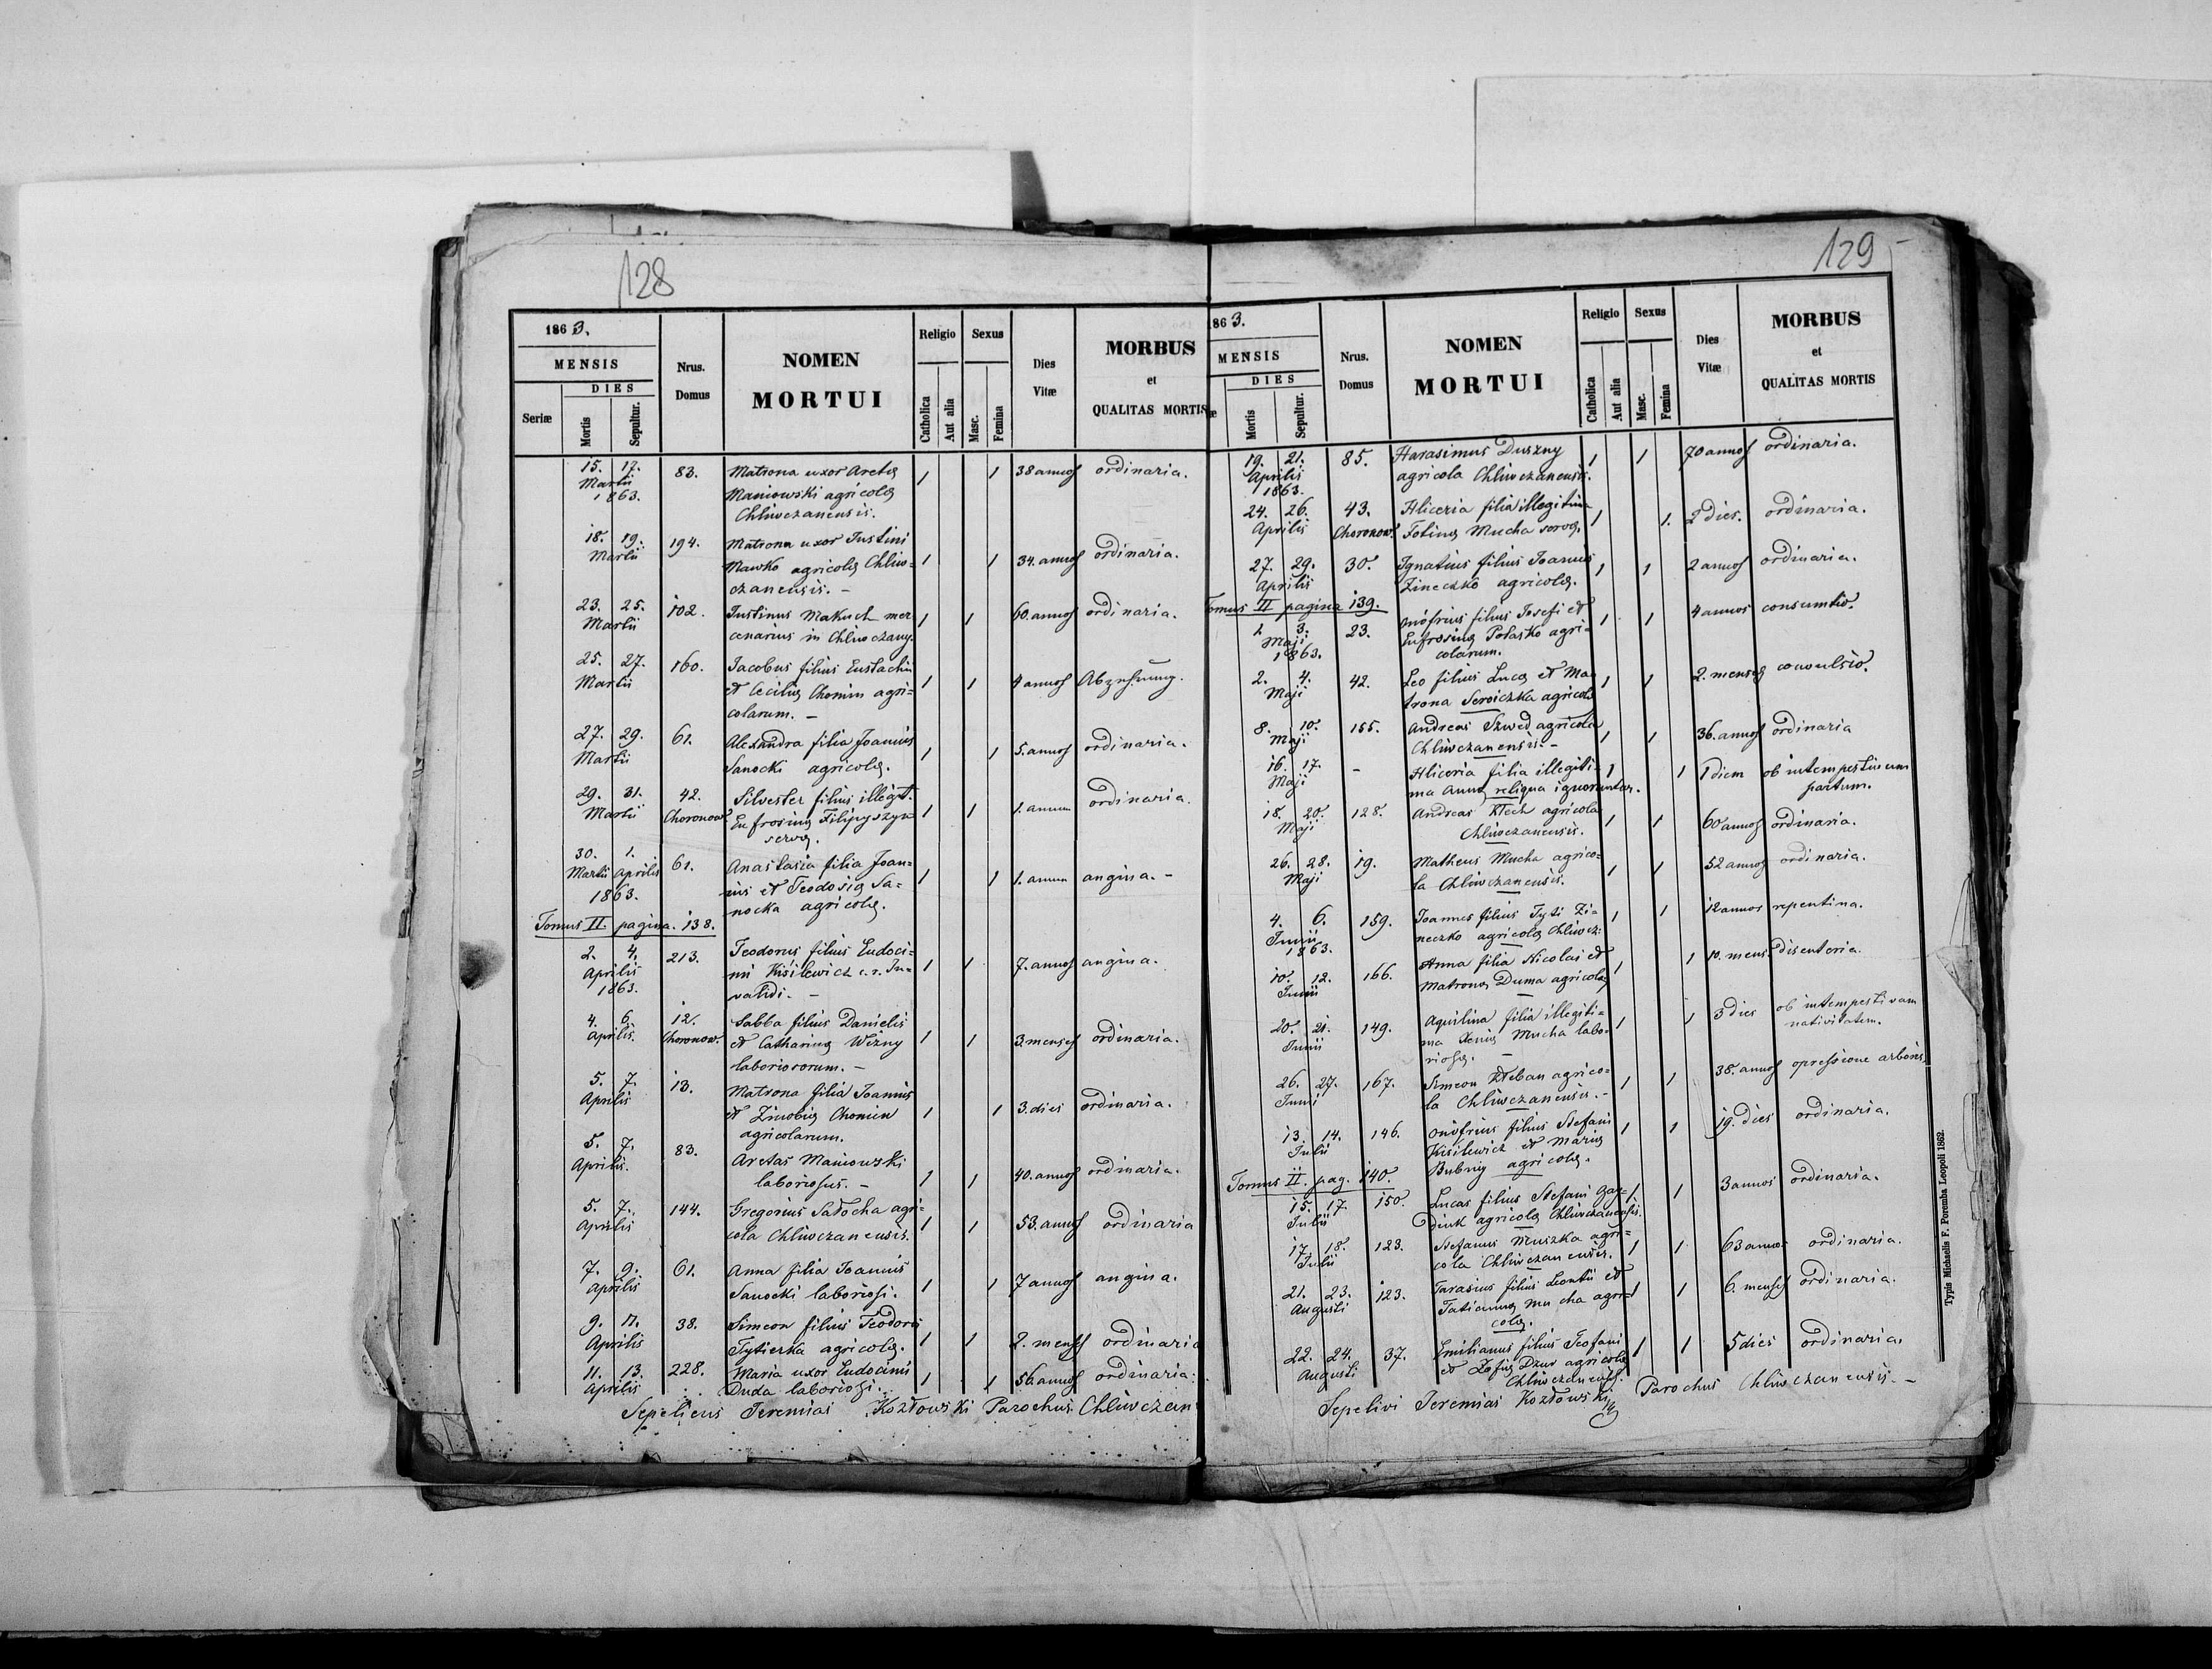 128
1863.
MENSIS
DIES
Seriæ
Mortis
Sepultur.
Nrus. Domus
NOMEN
MORTUI
Religio
Catholica
Aut alia
Sexus
Masc.
Femina
Dies Vitæ
MORBUS
et
QUALITAS MORTIS
15. 17. 83. Matrona uxor Aretæ 1 1 38 annos ordinaria.
Martii Maniowski agricolæ
1863. Chliwczanensis.
18. 19. 194. Matrona uxor Justini
Martii Nawko agricolæ Chliw= 1 1 34. annos ordinaria.
czanensis. –
23. 25. 102. Justinus Makuch mer 1 1 60. annos ordinaria.
Martii cenarius in Chliwczany.
25. 27. 160. Jacobus filius Eustachii
Martii et Ceciliæ Chomin agri= 1 1 4 annos Abzehrung.
colarum. –
27. 29. 61. Alexandra filia Joannis
Martii Sanocki agricolæ. 1 1 5. annos ordinaria.
29. 31. 42. Silvester filius illegit.
Martii Choronow Eufrosinæ Filipyszyn 1 1 1. annum ordinaria.
servæ.
30. 1. 61. Anastasia filia Joan=
Martii Aprilis nis et Teodosiæ Sa= 1 1 1. annum angina. –
1863. nocka agricolæ.
Tomus II pagina. 138.
2. 4. 213. Teodorus filius Eudoci=
Aprilis mi Kisilewicz c. r. In= 1 1 7. annos angina.
1863. validi. –
4. 6. 12. Sabba filius Danielis
Aprilis. Choronow. et Catharinæ Wizny 1 1 3. menses ordinaria.
laboriororum. –
5. 7. 13. Matrona filia Joannis
Aprilis et Zinobiæ Chomien 1 1 3. dies ordinaria.
agricolarum.
5. 7. 83. Aretas Maniowski
Aprilis. laboriosus. – 1 1 40. annos ordinaria.
5. 7. 144. Gregorius Sadocha agri=
Aprilis cola Chliwczanensis. 1 1 53. annos ordinaria
7. 9. 61. Anna filia Joannis
Aprilis Sanocki laboriosi. 1 1 7 annos angina.
9. 11. 38. Simeon filius Teodori
Aprilis Tytierka agricolæ. 1 1 2. menses ordinaria
11. 13. 228. Maria uxor Eudocimi
Aprilis Duda laboriosi. 1 1 56. annos ordinaria.
Sepeliens Jeremias Kozłowski Parochus Chliwczan
129
1863.
MENSIS
DIES
Mortis
Sepultur.
Nrus. Domus
NOMEN
MORTUI
Religio
Catholica
Aut alia
Sexus
Masc.
Femina
Dies Vitæ
MORBUS
et
QUALITAS MORTIS
19. 21. 85. Harasimus Duszny 1 1 70 annos ordinaria.
Aprilis agricola Chliwczanensis.
1863.
24. 26. 43. Hliceria filia illegitima
Aprilis Choronow. Fotinæ Mucha servæ. 1 1. 2 dies. ordinaria.
27. 29. 30. Ignatius filius Joannis 1 1 2 annos ordinaria.
Aprilis Zineczko agricolæ.
Tomus II pagina 139.
1. 3. 23. Onofrius filius Josefi et 1 1 4 annos consumtio.
Maji Eufrosinæ Potasko agri=
1863. colarum.
2. 4. 42. Leo filius Lucæ et Ma= 1 1 2. menses convulsio.
Maji trona Serviczka agricolæ
8. 10. 155. Andreas Szwed agricola 1 1 36. annos ordinaria
Maji Chliwczanensis. –
16. 17. – Hliceria filia illegiti= 1 1 1 diem ob intempestivum
Maji ma Annæ reliqua ignorantur. partum.
18. 20. 128. Andreas Klech agricola 1 1 60 annos ordinaria.
Maji Chliwczanensis.
26. 28. 19. Matheus Mucha agrico= 1 1 52 annos ordinaria.
Maji la Chliwczanensis.
4. 6. 159. Joannes filius Tyti Zi= 1 1 12 annos repentina.
Junii neczko agricolæ Chliwcz=
1863.
10. 12. 166. Anna filia Nicolai et 1 1 10. mens. disenteria.
Junii Matronæ Duma agricolæ
20. 21. 149. Aquilina filia illegiti= 1 1 3 dies ob intempestivam
Junii ma Xeniæ Mucha labo= nativitatem.
riosæ.
26. 27. 167. Simeon Kteban agrico= 1 1 38. annos opressione arboris.
Junii la Chliwczanensis. –
13. 14. 146. Onofrius filius Stefani 1 1 19. dies ordinaria.
Julii Kisilewicz et Mariæ
Bubniy agricolæ.
Tomus II. pag. 140.
15. 17. 150. Lucas filius Stefani Gay= 1 1 3 annos ordinaria.
Julii diuk agricolæ Chliwczanensis.
17. 18. 123. Stefanus Muszka agri= 1 1 63 annos ordinaria.
Julii cola Chliwczanensis.
21. 23. 123. Tarasius filius Leontii et 1 1 6. menses ordinaria.
Augusti Tatiannæ Mucha agri=
colæ.
22. 24. 37. Emilianus filius Teofani 1 1 5 dies ordinaria.
Augusti et Zofiæ Dzur agricolæ
Chliwczanensis.
Sepelivi Jeremias Kozłowski Parochus Chliwczanensis. –
Typis Michaelis F. Poremba Leopoli 1862.